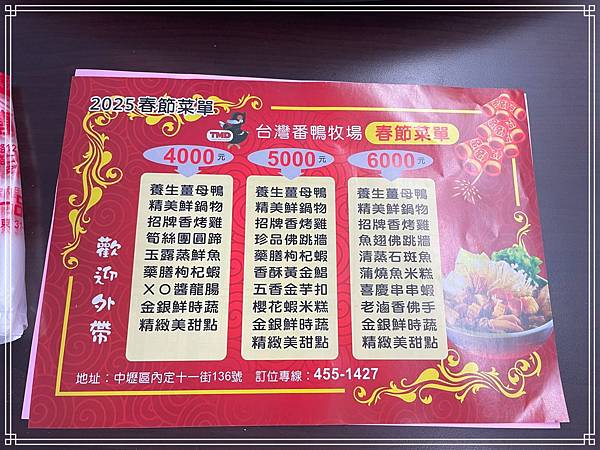 2025春節菜單
TMD 台灣番鴨牧場 春節菜單
4000元
養生薑母鴨
精美鮮鍋物
招牌香烤雞
筍絲團圓蹄
玉露蒸鮮魚
藥膳枸杞蝦
XO醬龍腸
金銀鮮時蔬
精緻美甜點
5000元
養生薑母鴨
精美鮮鍋物
招牌香烤雞
珍品佛跳牆
藥膳枸杞蝦
香酥黃金鯧
五香金芋扣
櫻花蝦米糕
金銀鮮時蔬
精緻美甜點
6000元
養生薑母鴨
精美鮮鍋物
招牌香烤雞
魚翅佛跳牆
清蒸石斑魚
蒲燒魚米糕
喜慶串串蝦
老滷香佛手
金銀鮮時蔬
精緻美甜點
歡迎外帶
地址：中壢區內定十一街136號 訂位專線：455-1427